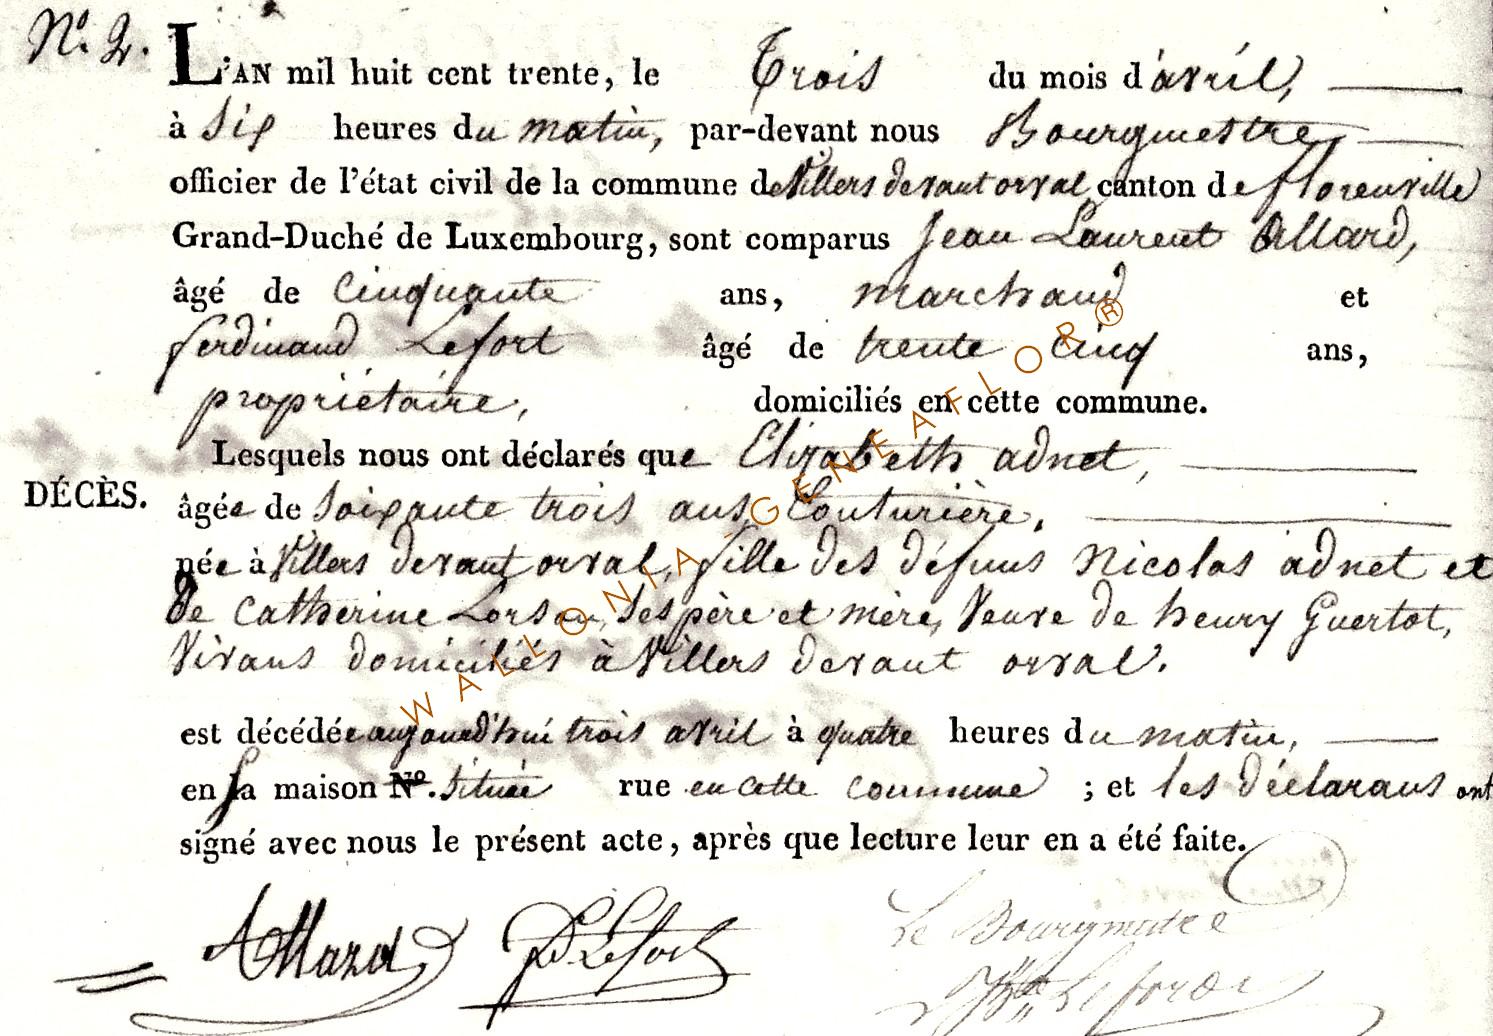 N.º 2. L'AN mil huit cent trente, le Trois du mois d'avril,
à Six heures du matin, par-devant nous Bourgmestre
officier de l'état civil de la commune de Villers devant orval canton de florenville
Grand-Duché de Luxembourg, sont comparus Jean Laurent Allard,
âgé de Cinquante ans, marchand et
ferdinand Lefort âgé de trente cinq ans,
propriétaire, domiciliés en cette commune.
Lesquels nous ont déclarés que Elizabeth adnet,
DÉCÈS. âgée de Soixante trois ans, Couturière,
née à Villers devant orval, fille des défuns Nicolas adnet et
de Catherine Lorson, Ses père et mère, Veuve de henry Guertot,
Vivans domiciliés à Villers devant orval.
est décédée aujourd'hui trois avril à quatre heures du matin,
en sa maison Nº. Située rue en cette commune ; et les déclarans ont
signé avec nous le présent acte, après que lecture leur en a été faite.
Allard f. Lefort Le Bourgmestre
Lefort
WALLONIA-GENEAFLOR®